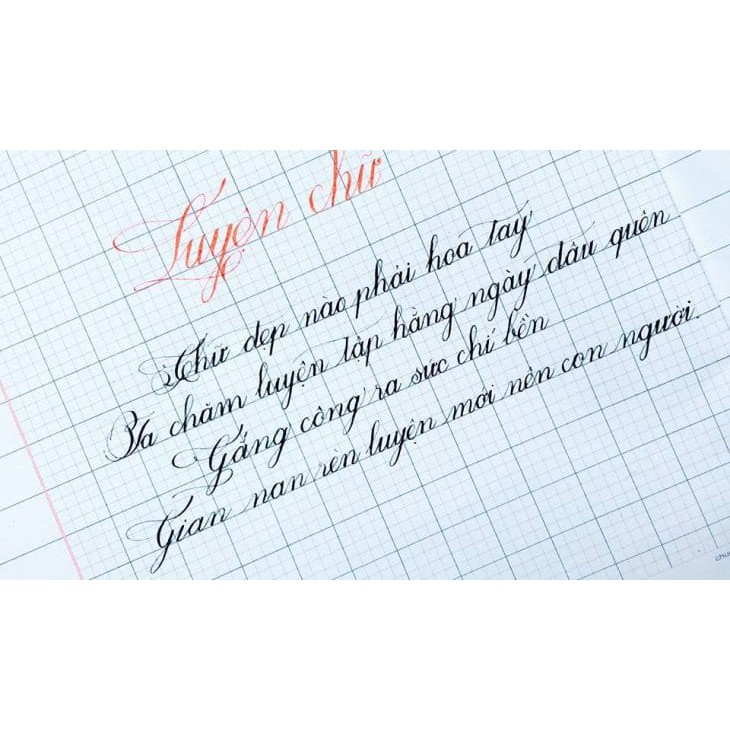 Luyện chữ
Chữ đẹp nào phải hoá tay
Ta chăm luyện tập hằng ngày dấu quên
Gắng công ra sức chí bền
Gian nan rèn luyện mới nên con người.